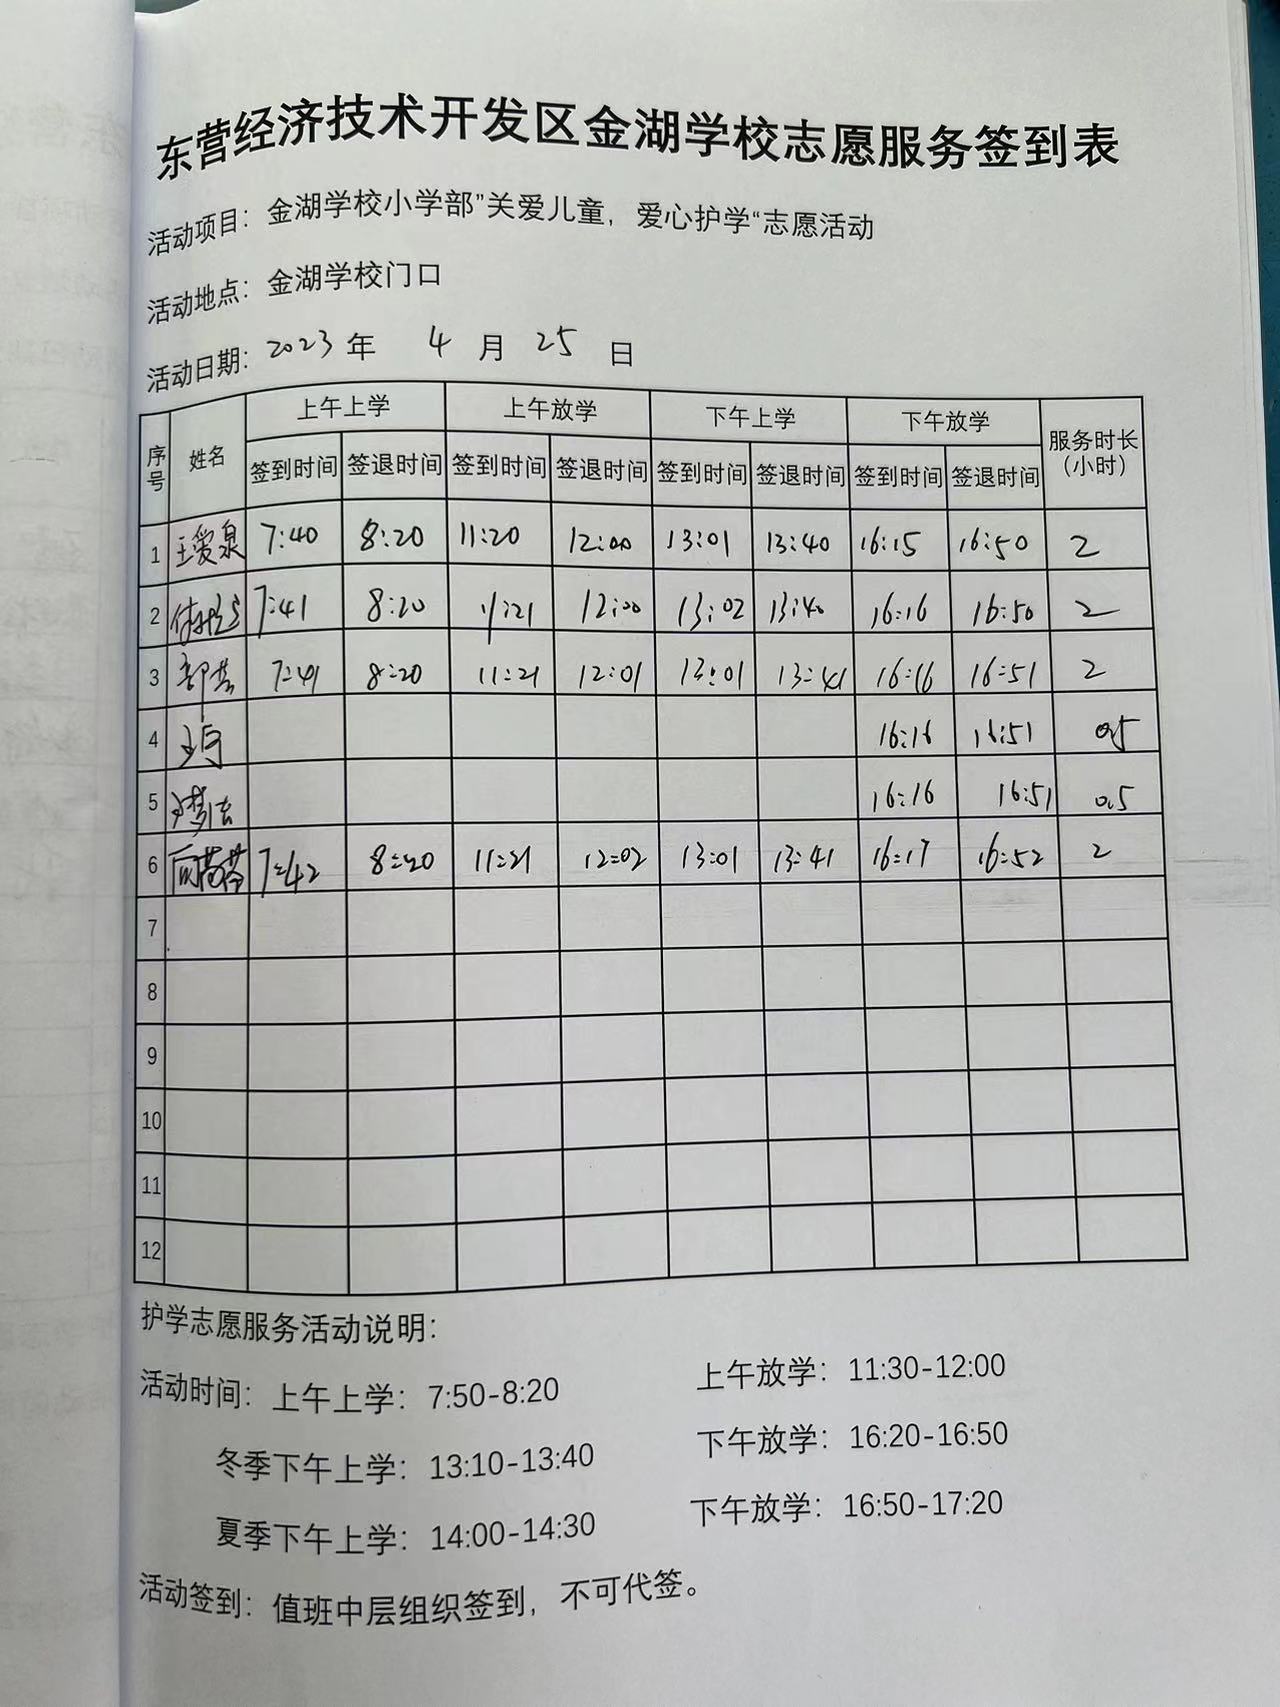 东营经济技术开发区金湖学校志愿服务签到表
活动项目：金湖学校小学部”关爱儿童，爱心护学“志愿活动
活动地点：金湖学校门口
活动日期：2023 年 4 月 25 日
序号 姓名 上午上学 上午放学 下午上学 下午放学 服务时长（小时）
签到时间 签退时间 签到时间 签退时间 签到时间 签退时间 签到时间 签退时间
1 王爱泉 7:40 8:20 11:20 12:00 13:01 13:40 16:15 16:50 2
2 7:41 8:20 11:21 12:00 13:02 13:40 16:16 16:50 2
3 7:41 8:20 11:21 12:01 13:01 13:41 16:16 16:51 2
4 16:16 16:51 0.5
5 16:16 16:51 0.5
6 7:42 8:20 11:21 12:02 13:01 13:41 16:17 16:52 2
7
8
9
10
11
12
护学志愿服务活动说明：
活动时间：上午上学：7:50-8:20 上午放学：11:30-12:00
冬季下午上学：13:10-13:40 下午放学：16:20-16:50
夏季下午上学：14:00-14:30 下午放学：16:50-17:20
活动签到：值班中层组织签到，不可代签。